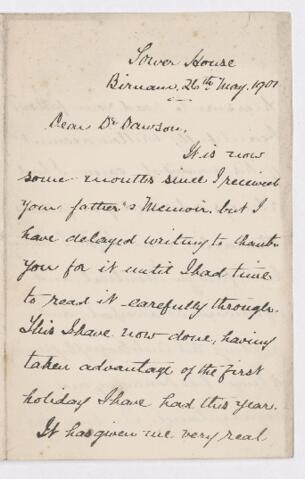 Tower House
Birnam. 26th May. 1901
Dear Dr Dawson,
It is now
some months since I received
your father's Memoir, but I
have delayed writing to thank
you for it until I had time
to read it carefully through.
This I have now done, having
taken advantage of the first
holiday I have had this year.
It has given me very real